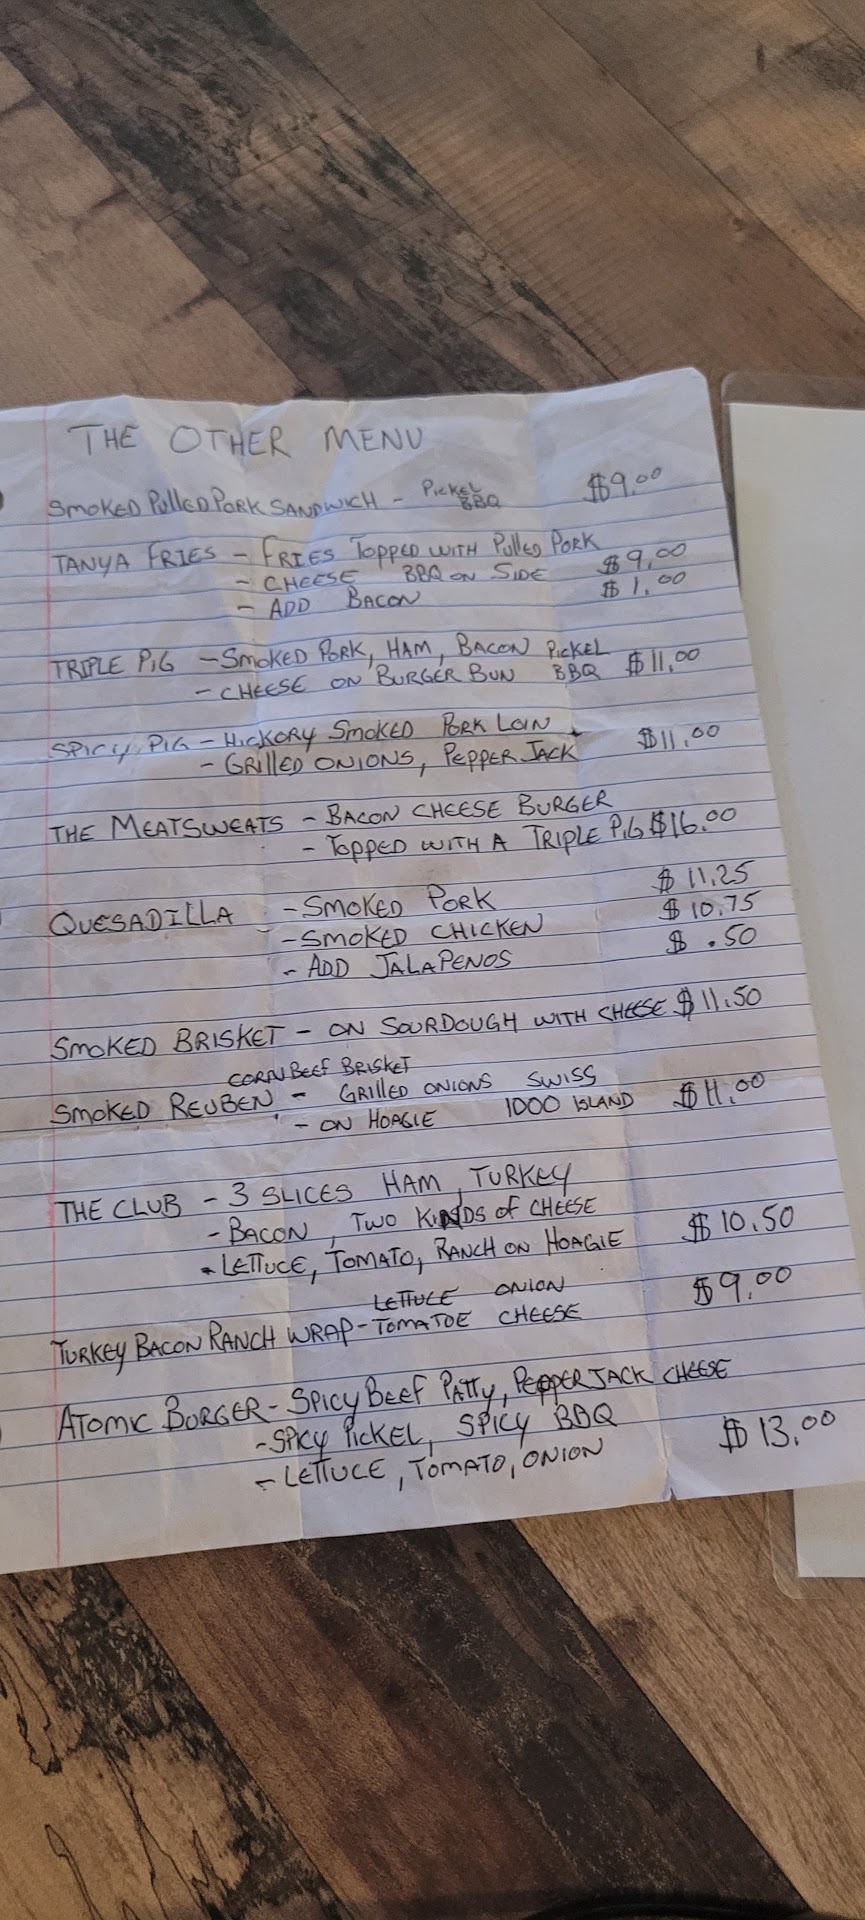 THE OTHER MENU
SMOKED PULLED PORK SANDWICH - PICKEL BBQ $9.00
TANYA FRIES - FRIES TOPPED WITH PULLED PORK
- CHEESE BBQ ON SIDE $9.00
- ADD BACON $1.00
TRIPLE PIG - SMOKED PORK, HAM, BACON PICKEL
- CHEESE ON BURGER BUN BBQ $11.00
SPICY PIG - HICKORY SMOKED PORK LOIN
- GRILLED ONIONS, PEPPER JACK $11.00
THE MEATSWEATS - BACON CHEESE BURGER
- TOPPED WITH A TRIPLE PIG $16.00
QUESADILLA - SMOKED PORK $11.25
- SMOKED CHICKEN $10.75
- ADD JALAPENOS $.50
SMOKED BRISKET - ON SOURDOUGH WITH CHEESE $11.50
CORN BEEF BRISKET
SMOKED REUBEN - GRILLED ONIONS SWISS
- ON HOAGIE 1000 ISLAND $11.00
THE CLUB - 3 SLICES HAM, TURKEY
- BACON, TWO KINDS OF CHEESE
- LETTUCE, TOMATO, RANCH ON HOAGIE $10.50
LETTUCE ONION
TURKEY BACON RANCH WRAP - TOMATOE CHEESE $9.00
ATOMIC BURGER - SPICY BEEF PATTY, PEPPER JACK CHEESE
- SPICY PICKEL, SPICY BBQ
- LETTUCE, TOMATO, ONION $13.00